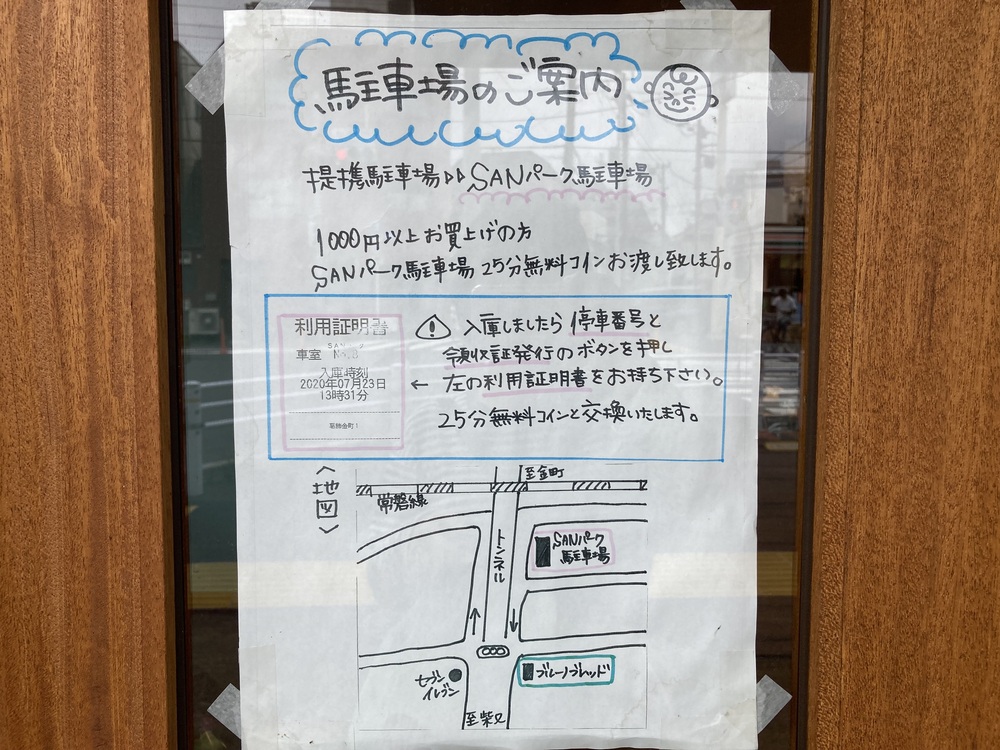 駐車場のご案内
提携駐車場▷▷SANパーク駐車場
1000円以上お買上げの方
SANパーク駐車場25分無料コインお渡し致します。
利用証明書
SANパーク
車室 No.8
入庫時刻
2020年07月23日
13時31分
葛飾金町1
! 入庫しましたら停車番号と
領収証発行のボタンを押し
← 左の利用証明書をお持ち下さい。
25分無料コインと交換いたします。
〈地図〉
至金町
常磐線
トンネル
SANパーク
駐車場
セブン
イレブン
ブルーノブレッド
至柴又